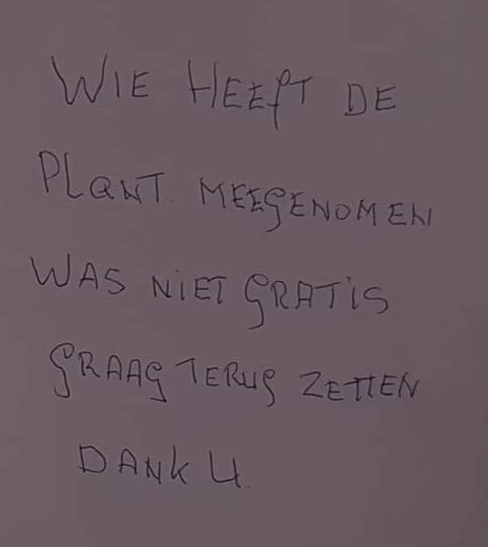 WIE HEEFT DE
PLANT. MEEGENOMEN
WAS NIET GRATIS
GRAAG TERUG ZETTEN
DANK U.